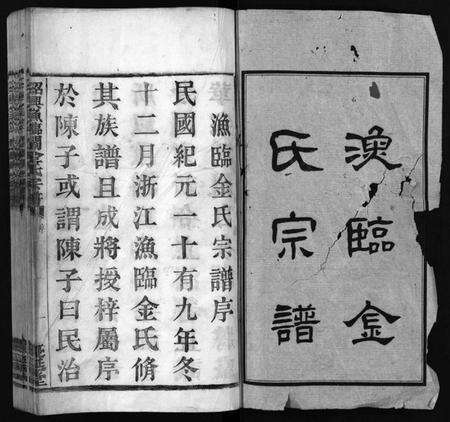 漁臨金
氏宗譜
漁臨金氏宗譜序
民國紀元一十有九年冬
十二月浙江漁臨金氏脩
其族譜且成將授梓屬序
於陳子或謂陳子曰民治